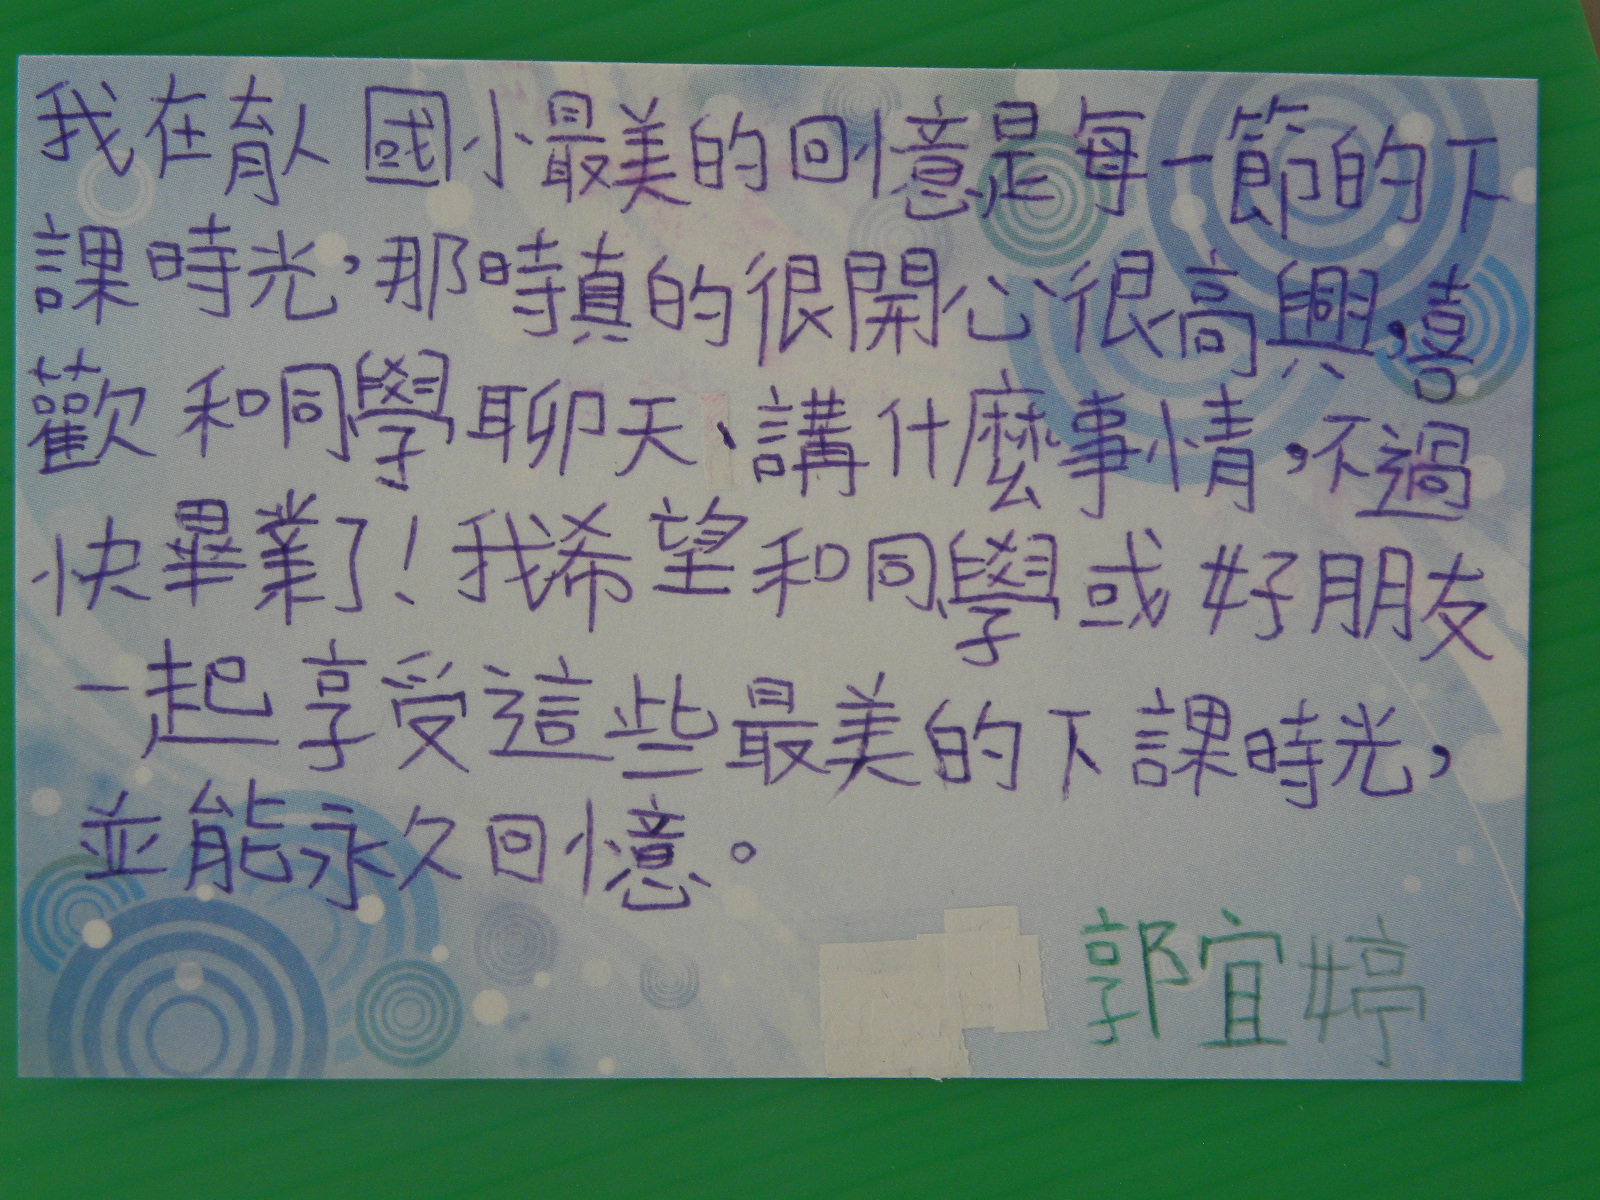 我在育人國小最美的回憶是每一節的下
課時光，那時真的很開心很高興，喜
歡和同學聊天、講什麼事情，不過
快畢業了！我希望和同學或好朋友
一起享受這些最美的下課時光，
並能永久回憶。
郭宜婷